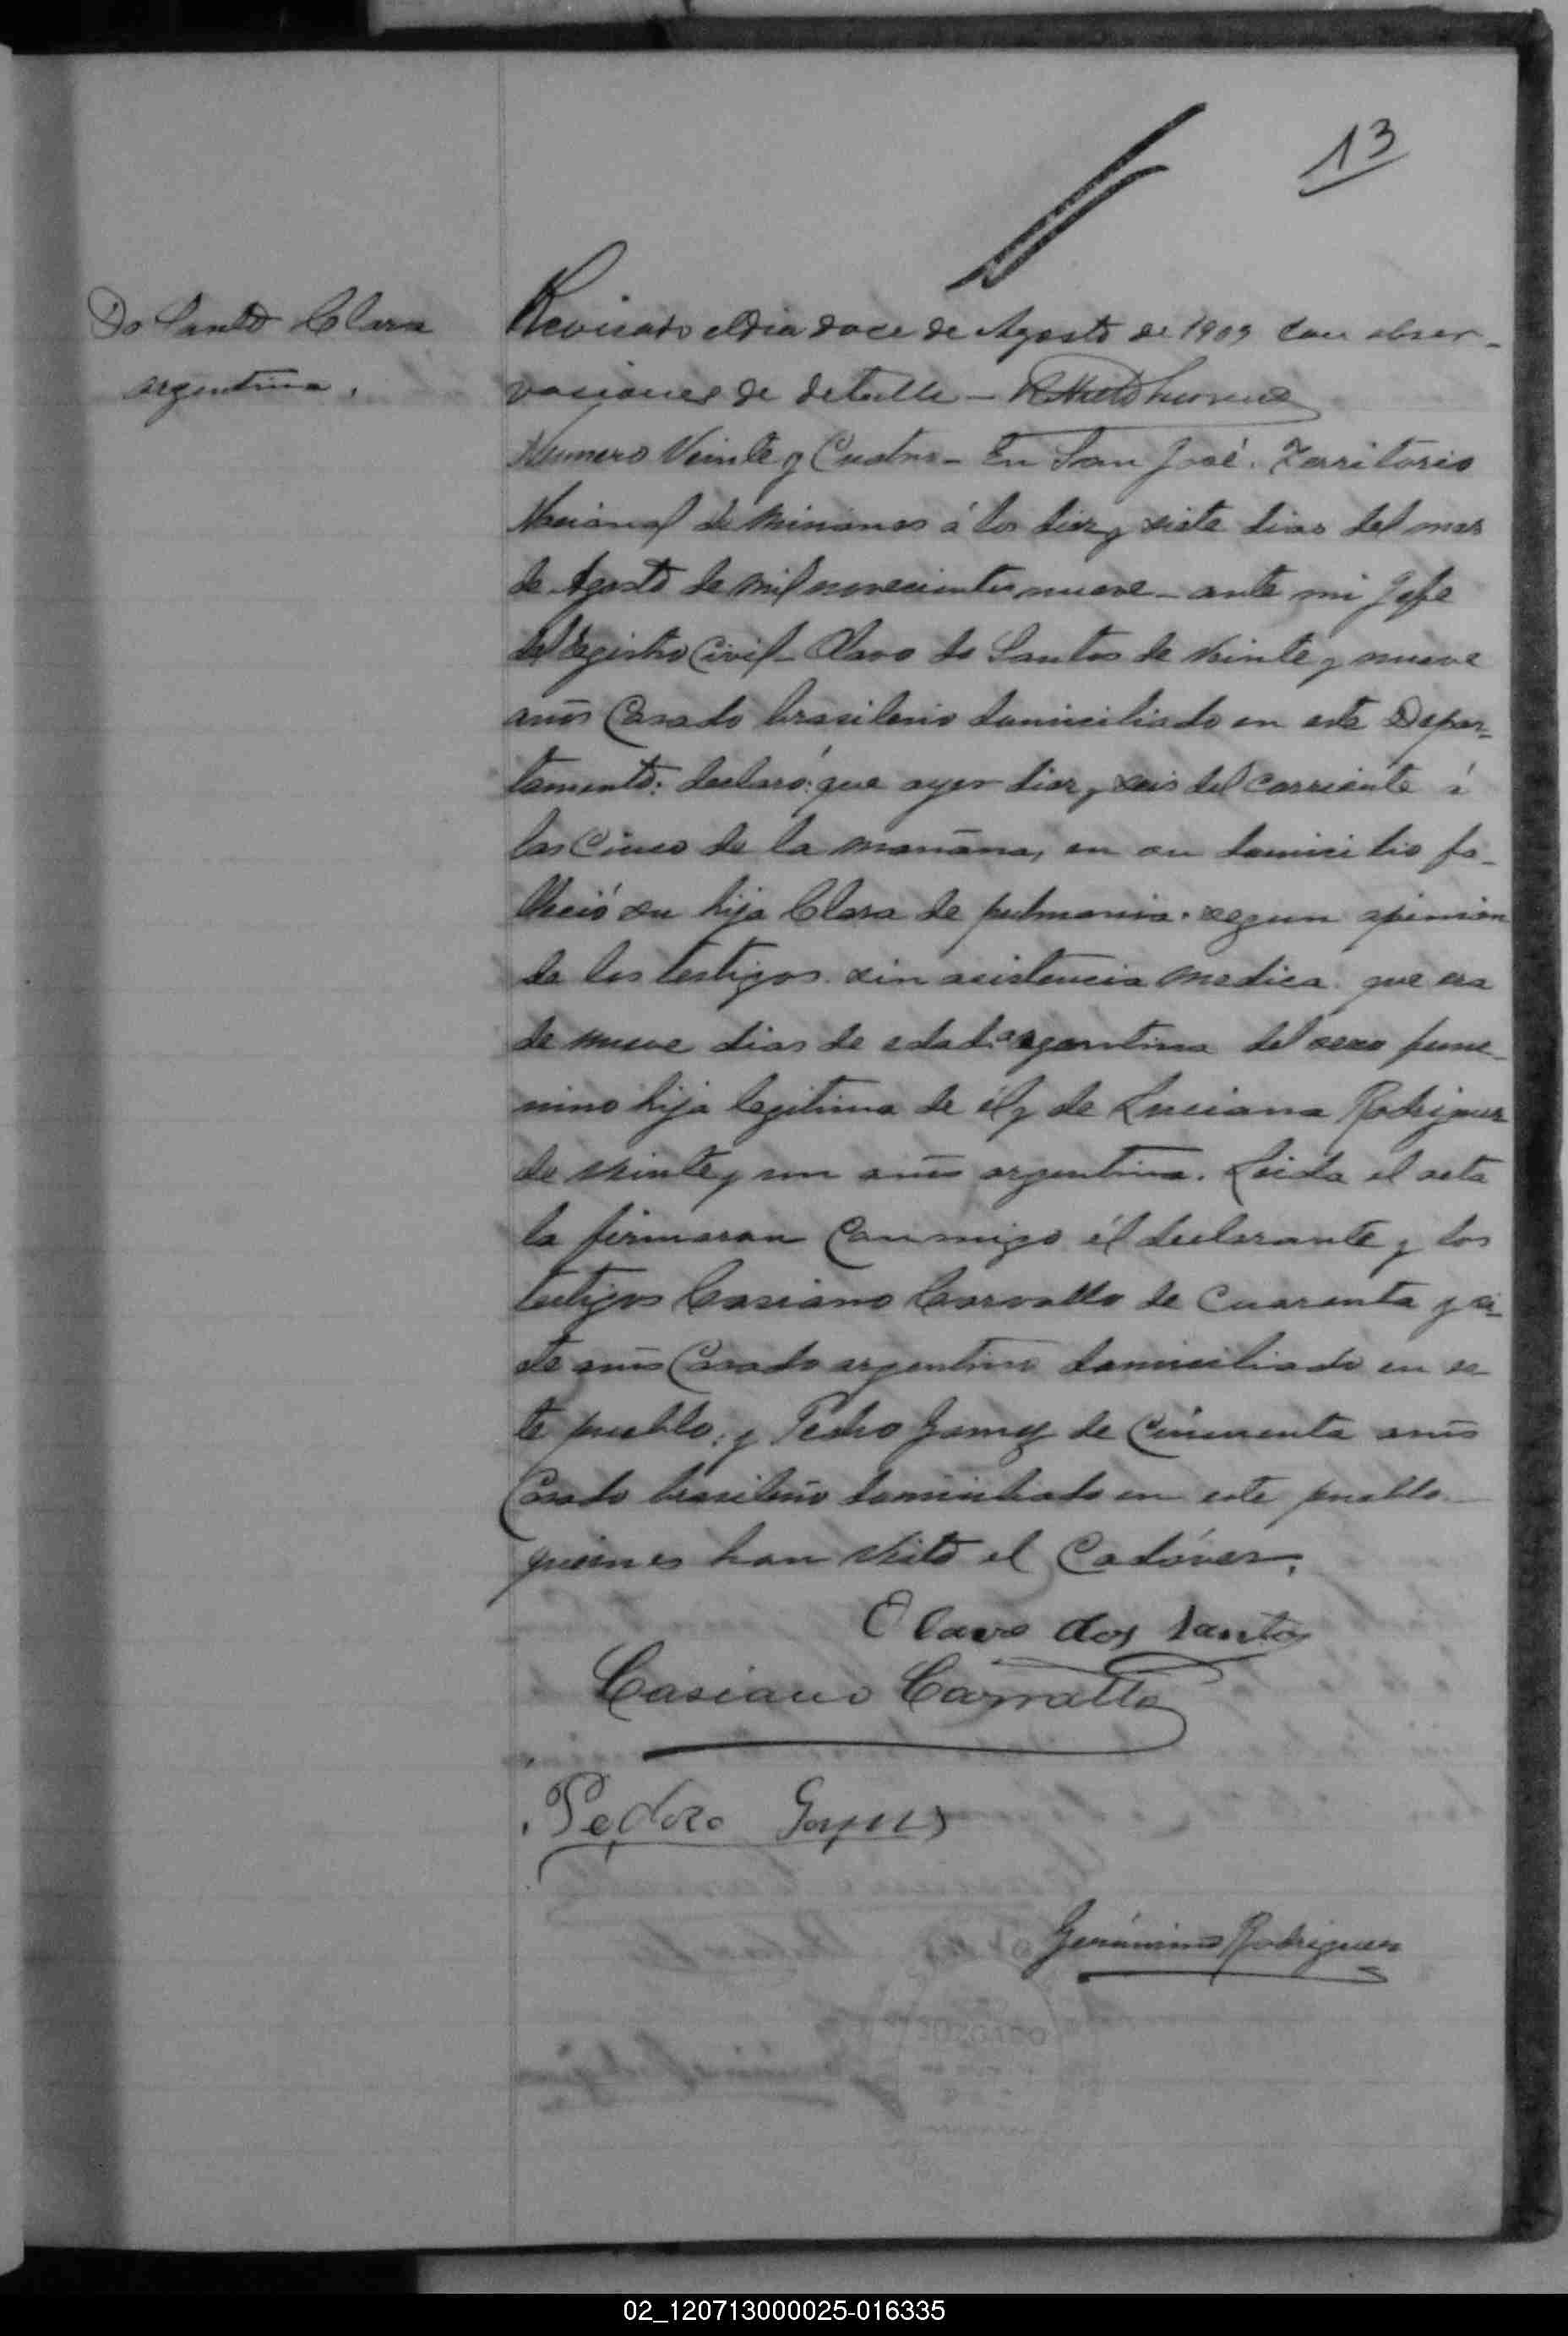 13
Do Santo Clara
argentina.
Revisado el dia doce de Agosto de 1909 con obser-
vaciones de detalle -
Numero Veinte y Cuatro - En San José. Territorio
Nacional de Misiones á los diez y siete dias del mes
de Agosto de mil novecientos nueve - ante mi Jefe
del Registro Civil - Olavo do Santos de veinte y nueve
años Casado brasilerio domiciliado en este Depar-
tamento: declaró: que ayer diez y seis del corriente á
las Cinco de la mañana, en su domicilio fa-
lleció su hija Clara de pulmonia. segun opinion
de los testigos. sin asistencia medica. que era
de nueve dias de edad argentina del sexo feme-
nino hija legitima de él y de Luciana Rodriguez
de veinte y un años argentina. Leida el acta
la firmaron Conmigo él declarante y los
testigos Casiano Carvallo de Cuarenta y si-
ete años Casado argentino domiciliado en es-
te pueblo: y Pedro Gomez de Cincuenta años
Casado brasileño domiciliado en este pueblo -
quienes han visto el Cadáver.
Olavo dos Santos
Casiano Carvallo
Pedro
Gerónimo Rodriguez
02_120713000025-016335